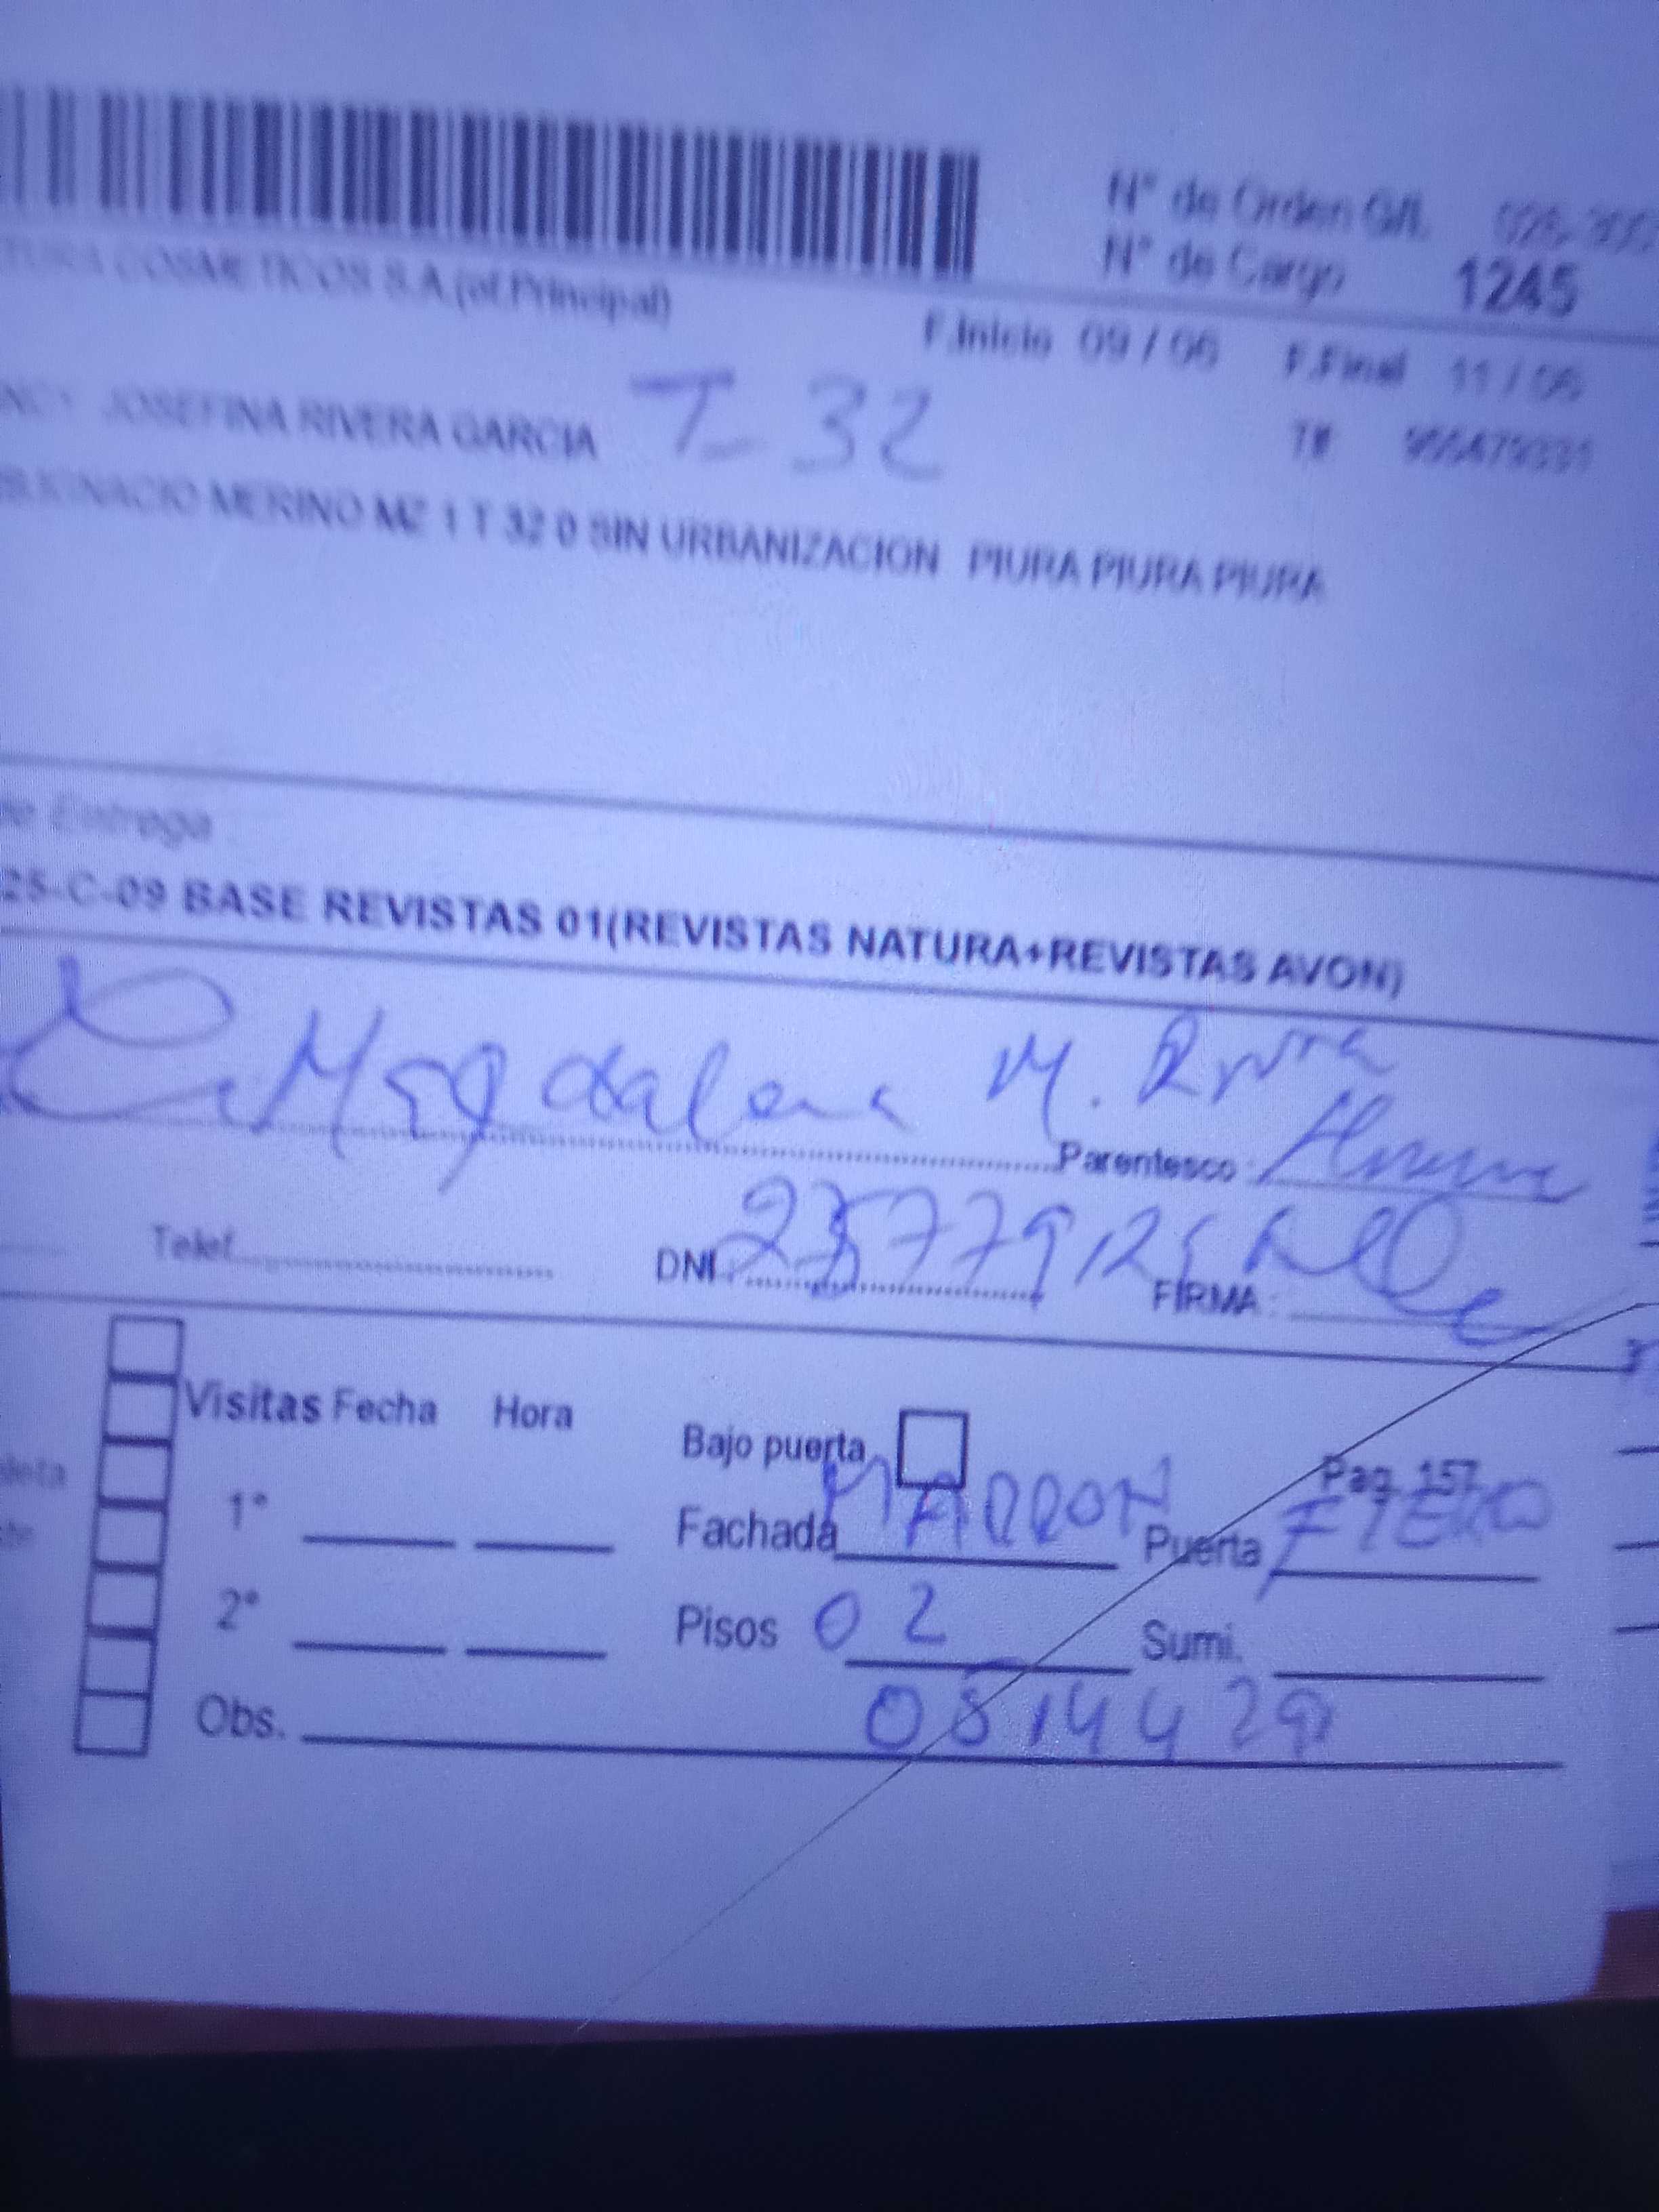 N° de Orden G/L
N° de Cargo 1245
COSMETICOS S.A.(of.Principal)
F.Inicio 09 / 06 F.Final 11 / 06
JOSEFINA RIVERA GARCIA T- 32
IGNACIO MERINO MZ 1 T 32 0 SIN URBANIZACION PIURA PIURA PIURA
Entrega
25-C-09 BASE REVISTAS 01(REVISTAS NATURA+REVISTAS AVON)
Magdalena M.
Parentesco :
Telef. DNI FIRMA :
Visitas Fecha Hora Bajo puerta Pag. 157
1° Fachada MARRON Puerta FIERRO
2° Pisos 02 Sumi.
Obs. 0814429